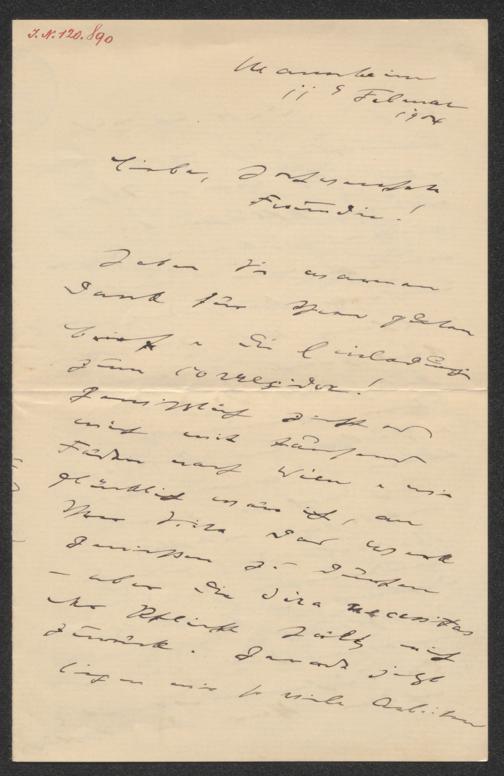 J.N. 120.890
Mannheim
11 Februar
1904
Liebe, hochverehrte
Freundin!
Haben Sie warmen
Dank für Ihren
Brief u die Einladung
zum Corregidor!
zieht es
mich mit tausend
Fäden nach Wien u wie
glücklich wäre ich, an
Ihrer Seite das Werk
genießen zu dürfen
– aber die dira necessitas
der Pflicht hält mich
zurück. Gerade jetzt
liegen mir so viele Arbeiten